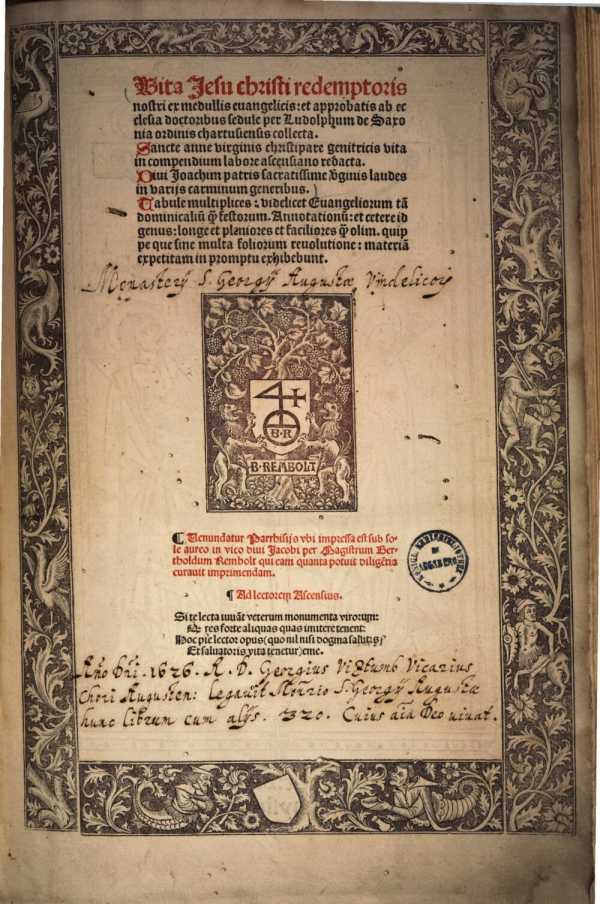 Vita Jesu christi redemptoris
nostri ex medullis euangelicis: et approbatis ab ec
clesia doctoribus sedule per Ludolphum de Saxo
nia ordinis chartusiensis collecta.
Sancte anne virginis christipare genitricis vita
in compendium labore ascensiano redacta.
Diui Joachim patris sacratissime v̓ginis laudes
in varijs carminum generibus.
Tabule multiplices: videlicet Euangeliorum tā
dominicaliū q̄ festorum. Annotationū: et cetere id
genus: longe et pleniores et faciliores q̄ olim. quip
pe que sine multa foliorum reuolutione: materiā
expetitam in promptu exhibebunt.
Monasterÿ S. Georgÿ Augustæ Vindelicor̄
B·R
B·REMBOLT
¶ Uenundatur Parrhisijs vbi impressa est sub so-
le aureo in vico diui Jacobi per Magistrum Ber-
tholdum Rembolt qui eam quanta potuit diligētia
curauit imprimendam.
¶ Ad lectorem Ascensius.
Si te lecta iuuāt veterum monumenta virorum:
Et res forte aliquas quas imitere tenent:
Hoc pie lector opus (quo nil nisi dogma salutis)
Et saluatoris vita tenetur) eme.
Año Dñi. 1626. R. D. Georgius Vicarius
Chori Augusten: legauit S. Georgÿ Augustæ
hunc librum cum alÿs. 320. Cuius aīa Deo viuat.